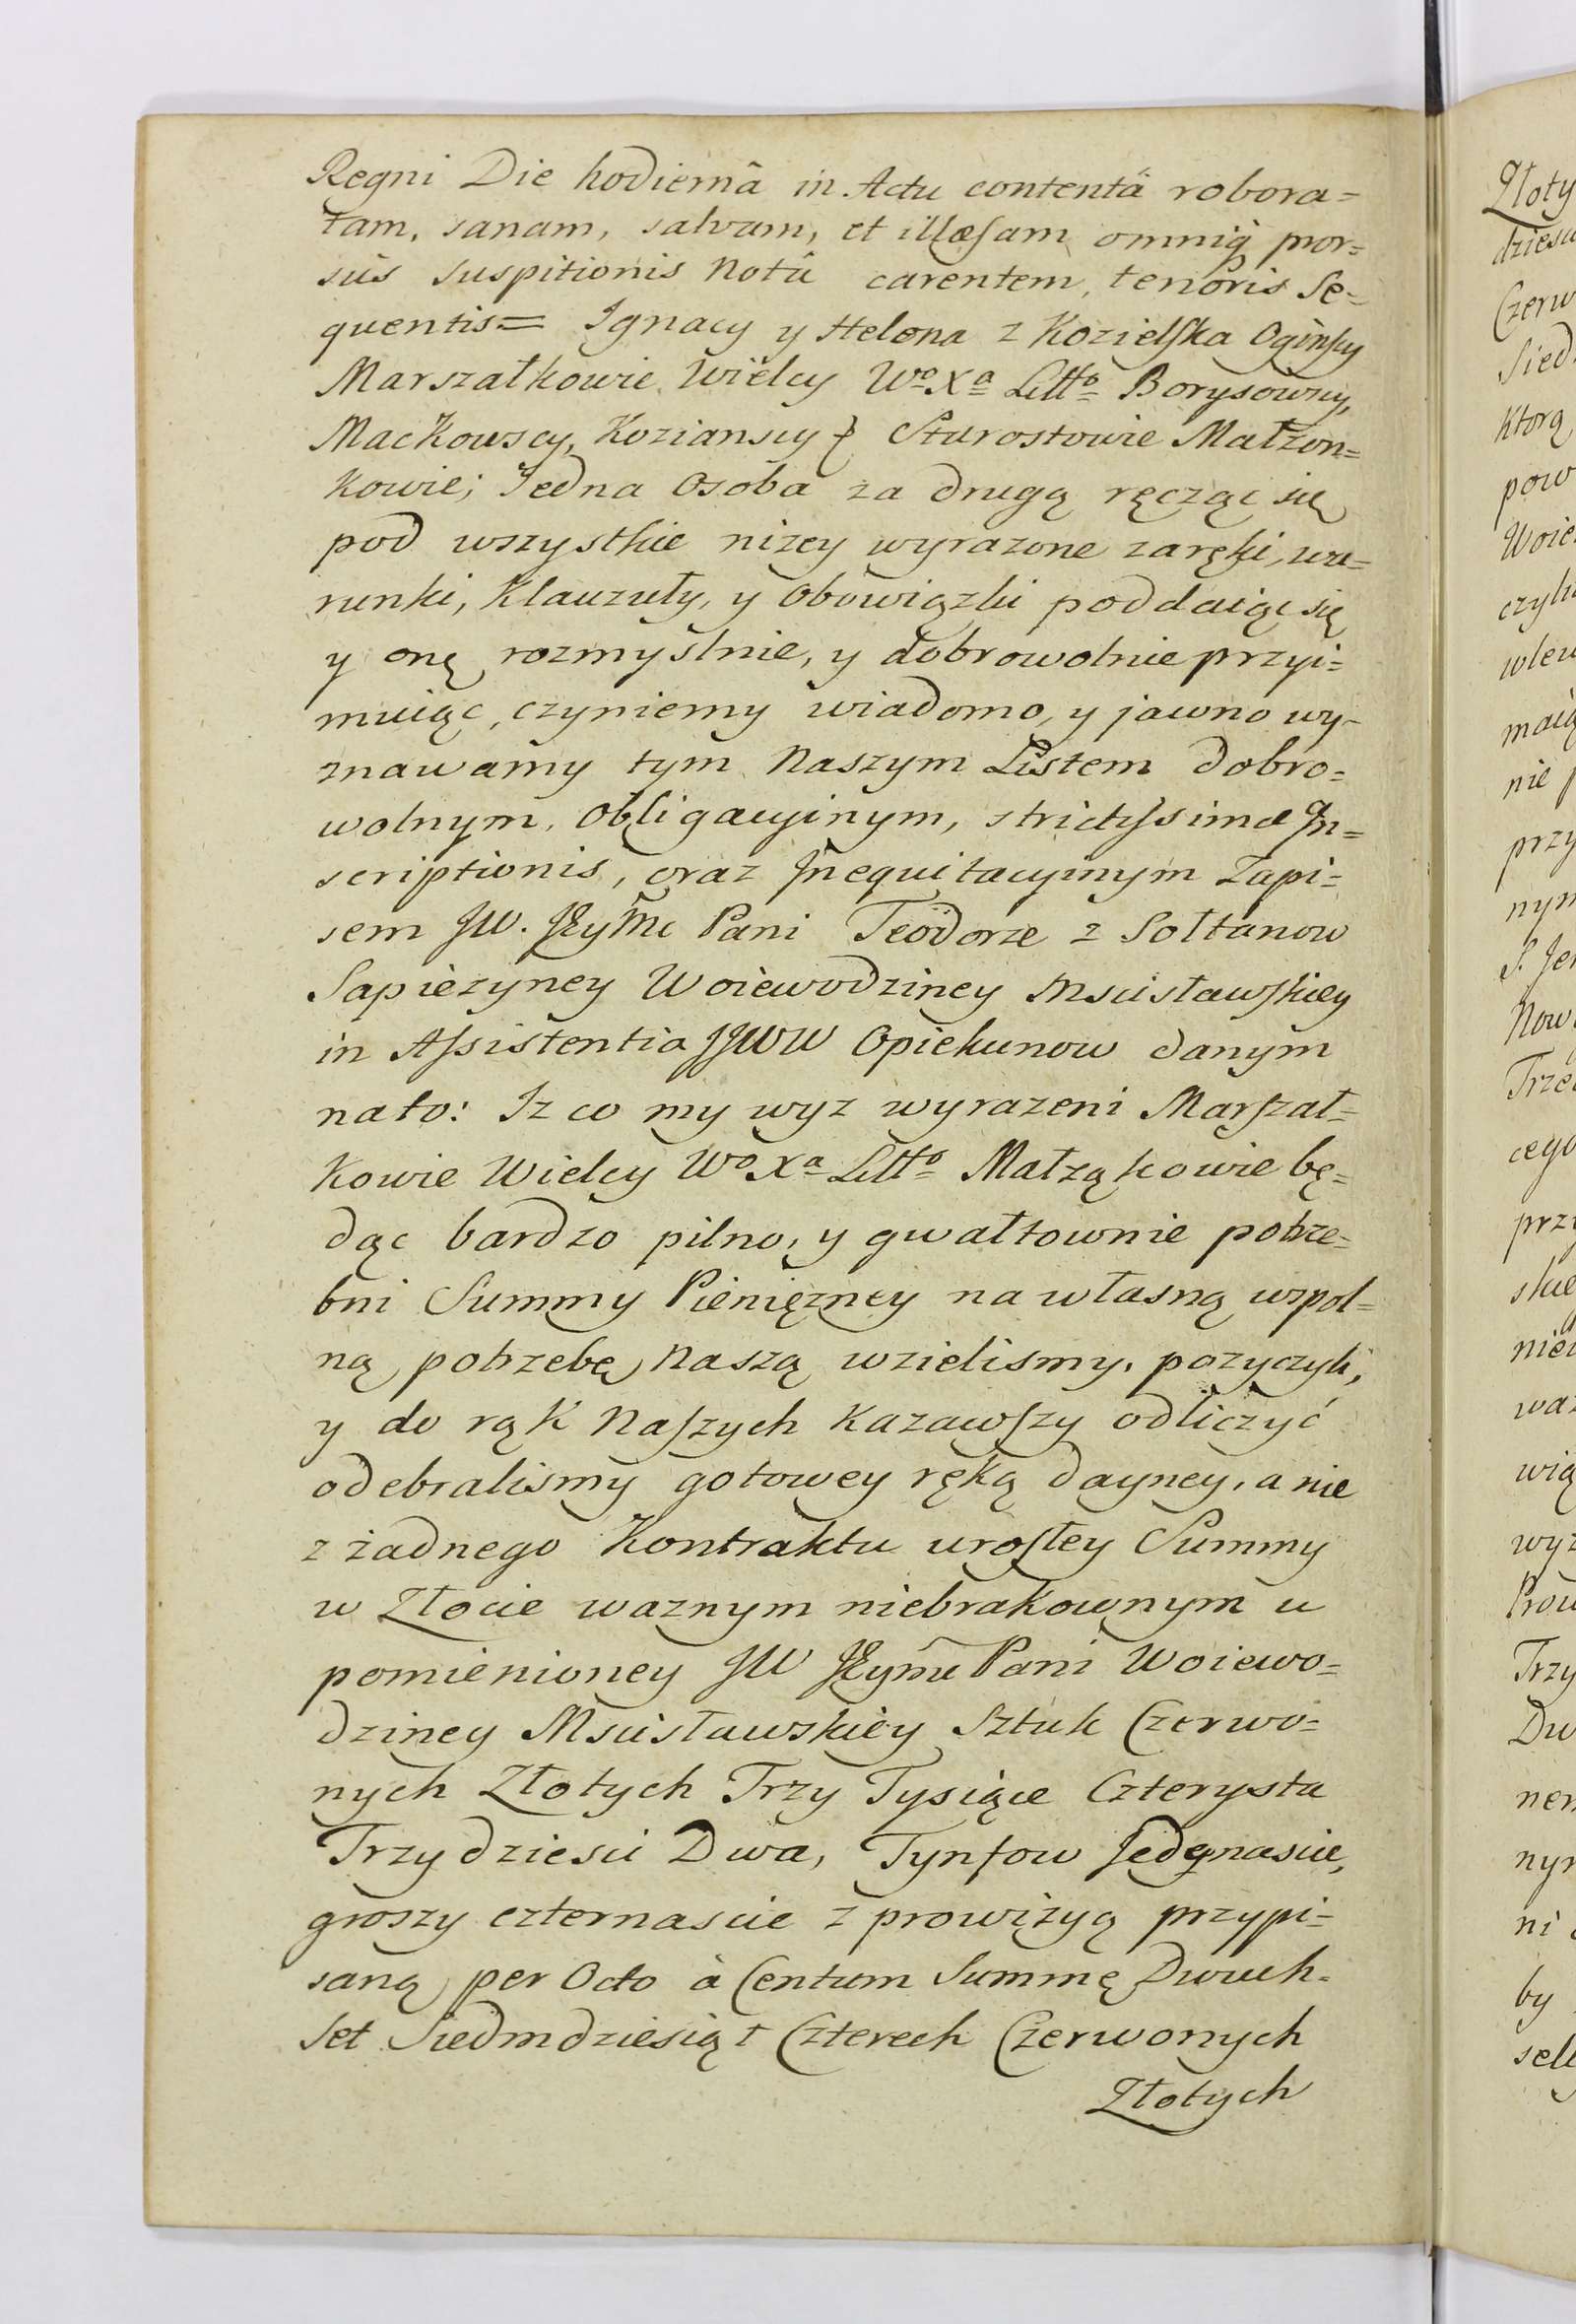 Regni Die hodiernâ in Actu contentâ robora=
tam, sanam, salvam, et illæsam omniq́ȝ pror=
sùs suspitionis Notâ carentem, tenoris Se=
quentis= Ignacy y Helena z Kozielska Ogińscy
Marszałkowie Wielcy Wº Xª Littº Borysowscy,
Mackowscy, Kozianscy & Starostowie Małzon=
kowie; Jedna Osoba za drugą ręcząc się
pod wszystkie nizey wyrazone zaręki, wa=
runki, Klauzuły, y Obowiązki poddaiąc się
y onę rozmyslnie, y dobrowolnie przyi=
muiąc, czyniemy wiadomo, y jawno wy-
znawamy tym Naszym Listem dobro=
wolnym, Obligacyinym, strictissimæ In=
scriptionis, oraz Inequitacyinym Zapi=
sem JW. JEyMc Pani Teodorze z Sołtanow
Sapiezyney Woiewodziney Mscisławskiey
in Assistentia JJWW Opiekunow danym
nato: Iz co my wyz wyrazeni Marszał=
kowie Wielcy Wº Xª Littº Małząkowie bę=
dąc bardzo pilno, y gwałtownie potrze=
bni Summy Pieniężney na własną wspol=
ną potrzebę Naszą wzielismy, pozyczyli,
y do rąk Naszych kazawszy odliczyć
odebralismy gotowey ręką dayney, a nie
z żadnego Kontraktu urosłey Summy
w Złocie waznym niebrakownym u
pomienioney JW JEymci Pani Woiewo=
dziney Mscisławskiey Sztuk Czerwo=
nych Złotych Trzy Tysiące Czterysta
Trzydziesci Dwa, Tynfow Jedenascie,
groszy czternascie z prowizyą przypi=
saną per Octo à Centum Summę Dwuch=
set Siedmdziesiąt Czterech Czerwonych
Złotych